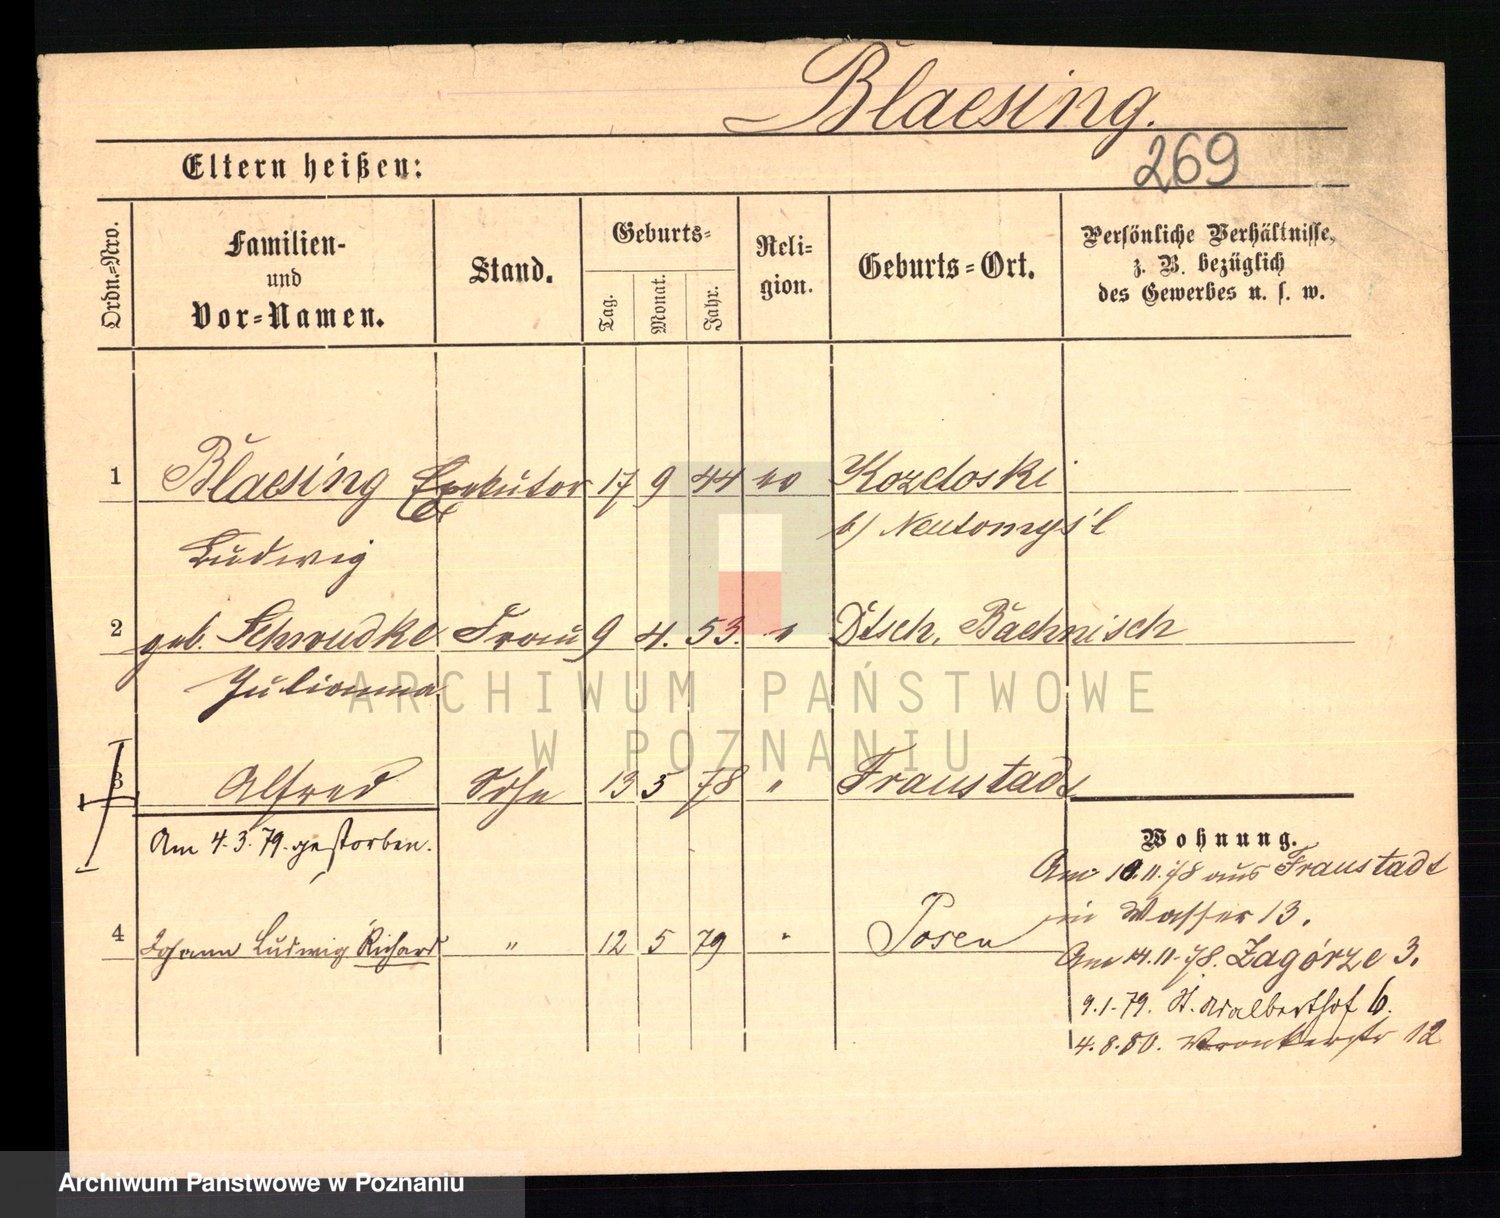 Blaesing.
269
Eltern heißen:
Ordn.-Nro.
Familien-
und
Vor-Namen.
Stand.
Geburts-
Tag.
Monat.
Jahr.
Reli-
gion.
Geburts-Ort.
Persönliche Verhältnisse,
z. B. bezüglich
des Gewerbes u. s. w.
1 Blaesing Exekutor 17 9 44 ev Kozcloski
Ludwig b/ Neutomyśl
2 geb. Schrudke Frau 9 4. 53. " Dtsch. Bachnisch
Julianna
3 Alfred Sohn 13 5 78 " Fraustadt
Am 4.3.79. gestorben.
4 Johann Ludwig Richard " 12 5 79 " Posen
Wohnung.
Am 10.11.78 aus Fraustadt
in Wasser 13.
Am 14.11.78. Zagórze 3.
9.1.79. St. Adalberthof 6.
4.8.80. Wronkerstr 12
ARCHIWUM PAŃSTWOWE
W POZNANIU
Archiwum Państwowe w Poznaniu